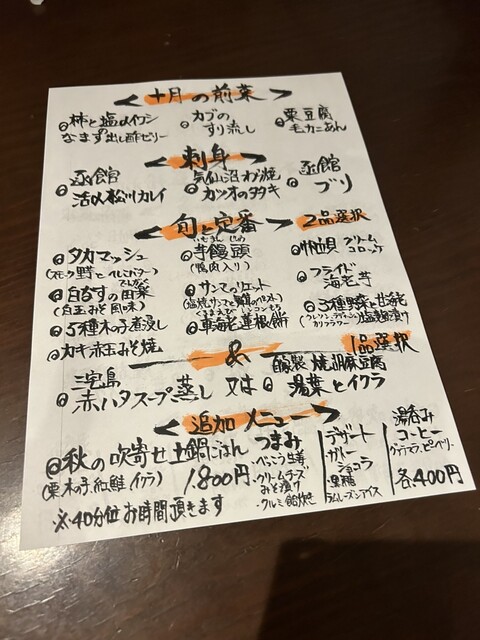 十月の前菜
柿と塩〆イワシ
なます出し酢ゼリー
カブの
すり流し
栗豆腐
毛カニあん
刺身
函館
活〆松川カレイ
気仙沼わら焼
カツオのタタキ
函館
ブリ
旬と定番 2品選択
タカマッシュ
白なすの田楽
(白玉みそ風味)
5種木の子煮浸し
カキ赤玉みそ焼
いもまんじゅう
芋饅頭
(鴨肉入り)
サンマのリエット
車海老蓮根餅
帆立貝 クリームコロッケ
フライド
海老芋
&
1品選択
三宅島
赤ハタスープ蒸し 又は
自家製 焼胡麻豆腐
湯葉とイクラ
追加メニュー
秋の吹寄せ土鍋ごはん
(栗木の子、紅鮭、イクラ) 1,800円
※40分位お時間頂きます
つまみ
・べっこう生姜
・クリームチーズ
みそ漬け
・クルミ飴炊き
デザート
・ガトー
ショコラ
・黒糖
ラムレーズンアイス
湯呑み
コーヒー
グァテマラ、ピーベリー
各400円